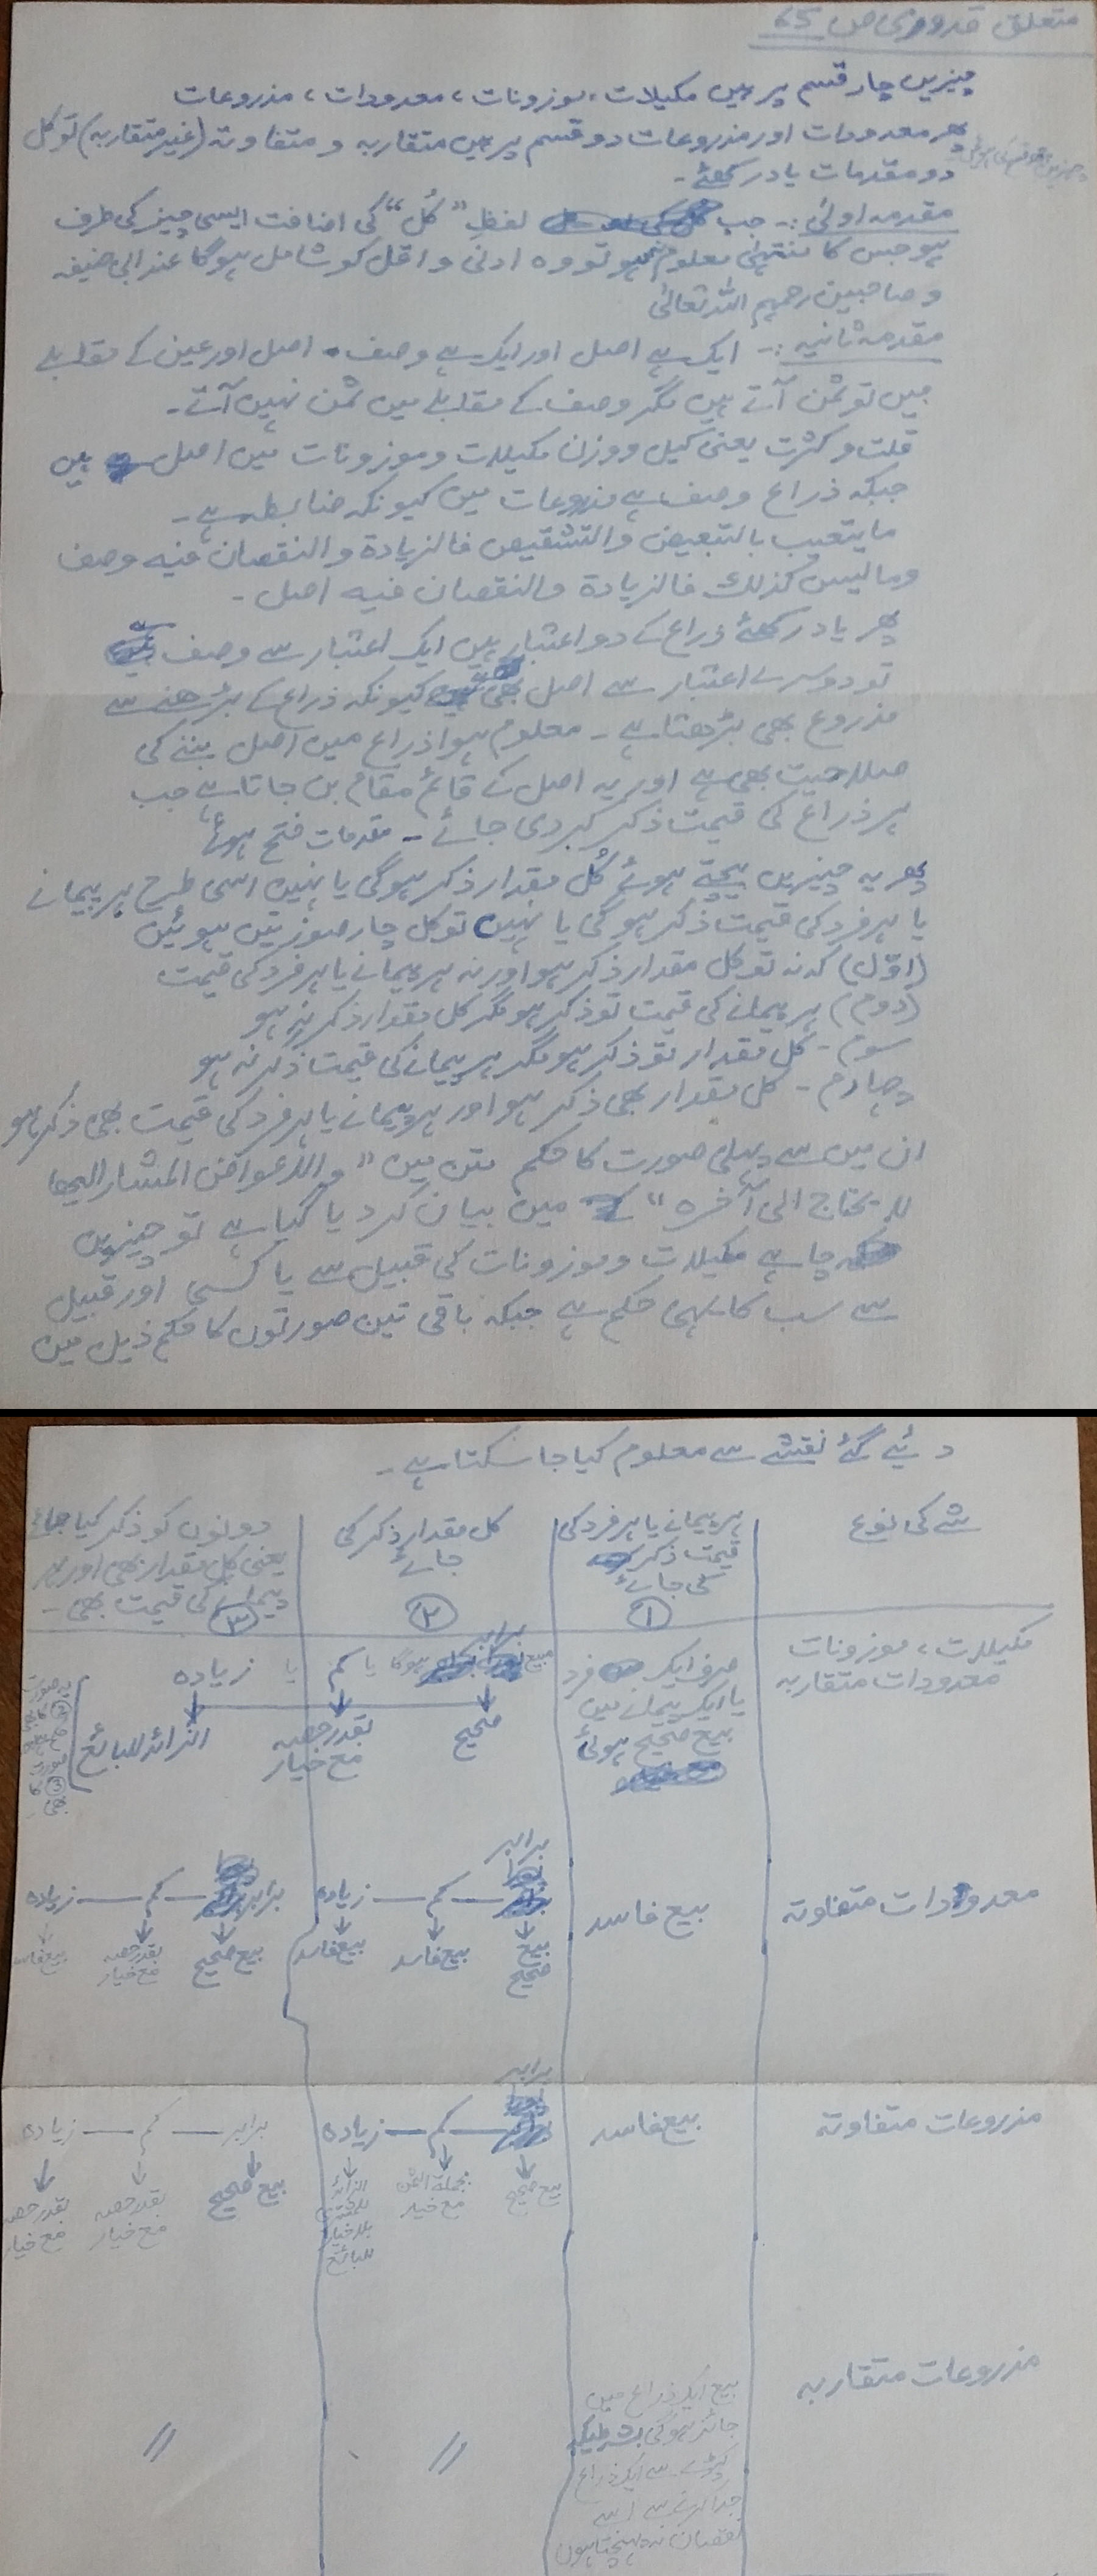 متعلق قدوری ص 65
چیزیں چار قسم پر ہیں مکیلات، موزونات، معدودات، مذروعات
پھر معدودات اور مذروعات دو قسم پر ہیں متقاربہ و متفاوتہ (غیر متقاربہ) تو کل
دو مقدمات یاد رکھئے۔
مقدمہ اولیٰ :۔ جب لفظِ "کُل" کی اضافت ایسی چیز کی طرف
ہو جس کا منتہیٰ معلوم نہ ہو تو وہ ادنیٰ و اقل کو شامل ہوگا عند ابی حنیفہ
و صاحبین رحمہم اللہ تعالیٰ
مقدمہ ثانیہ :۔ ایک ہے اصل اور ایک ہے وصف۔ اصل اور عین کے مقابلے
میں تو ثمن آتے ہیں مگر وصف کے مقابلے میں ثمن نہیں آتے۔
قلت و کثرت یعنی کیل و وزن مکیلات و موزونات میں اصل ہیں
جبکہ ذراع وصف ہے مذروعات میں کیونکہ ضابطہ ہے۔
ما یتعیب بالتبعیض والتشقیص فالزیادۃ والنقصان فیہ وصف
وما لیس کذلک فالزیادۃ والنقصان فیہ اصل۔
پھر یاد رکھئے ذراع کے دو اعتبار ہیں ایک اعتبار سے وصف
تو دوسرے اعتبار سے اصل بھی کیونکہ ذراع کے بڑھنے سے
مذروع بھی بڑھتا ہے۔ معلوم ہوا ذراع میں اصل بننے کی
صلاحیت بھی ہے اور یہ اصل کے قائم مقام بن جاتا ہے جب
ہر ذراع کی قیمت ذکر کردی جائے۔ مقدمات ختم ہوئے
پھر یہ چیزیں بیچتے ہوئے کُل مقدار ذکر ہوگی یا نہیں اسی طرح ہر پیمانے
یا ہر فرد کی قیمت ذکر ہوگی یا نہیں تو کل چار صورتیں ہوئیں
(اوّل) کہ نہ تو کل مقدار ذکر ہو اور نہ ہر پیمانے یا ہر فرد کی قیمت
(دوم) ہر پیمانے کی قیمت تو ذکر ہو مگر کل مقدار ذکر نہ ہو
سوم۔ کل مقدار تو ذکر ہو مگر ہر پیمانے کی قیمت ذکر نہ ہو
چہارم۔ کل مقدار بھی ذکر ہو اور ہر پیمانے یا ہر فرد کی قیمت بھی ذکر ہو
ان میں سے پہلی صورت کا حکم متن میں "والاعواض المشار الیہا
لا یحتاج الی آخرہ" میں بیان کردیا گیا ہے تو چیزیں
چاہے مکیلات و موزونات کی قبیل سے یا کسی اور قبیل
سے سب کا یہی حکم ہے جبکہ باقی تین صورتوں کا حکم ذیل میں
دئیے گئے نقشے سے معلوم کیا جاسکتا ہے۔
شے کی نوع
ہر پیمانے یا ہر فرد کی
قیمت ذکر
کی جائے
①
کل مقدار ذکر کی
جائے
②
دونوں کو ذکر کیا جائے
یعنی کل مقدار بھی اور ہر
پیمانے کی قیمت بھی۔
③
مکیلات، موزونات
معدودات متقاربہ
صرف ایک فرد
یا ایک پیمانے میں
بیع صحیح ہوئی
مبیع برابر ہوگا یا کم یا زیادہ
صحیح
بقدر حصہ
مع خیار
الزائد للبائع
معدودات متفاوتہ
بیع فاسد
برابر — کم — زیادہ
بیع صحیح
بیع فاسد
بیع فاسد
برابر — کم — زیادہ
بیع صحیح
بقدر حصہ
مع خیار
بیع فاسد
مذروعات متفاوتہ
بیع فاسد
برابر — کم — زیادہ
بیع صحیح
بجملۃ الثمن
مع خیار
الزائد
للمشتری
بلا خیار
للبائع
برابر — کم — زیادہ
بیع صحیح
بقدر حصہ
مع خیار
بقدر حصہ
مع خیار
مذروعات متقاربہ
بیع ایک ذراع میں
جائز ہوگی بشرطیکہ
کپڑے سے ایک ذراع
جدا کرنے سے اسے
نقصان نہ پہنچتا ہوں
//
//